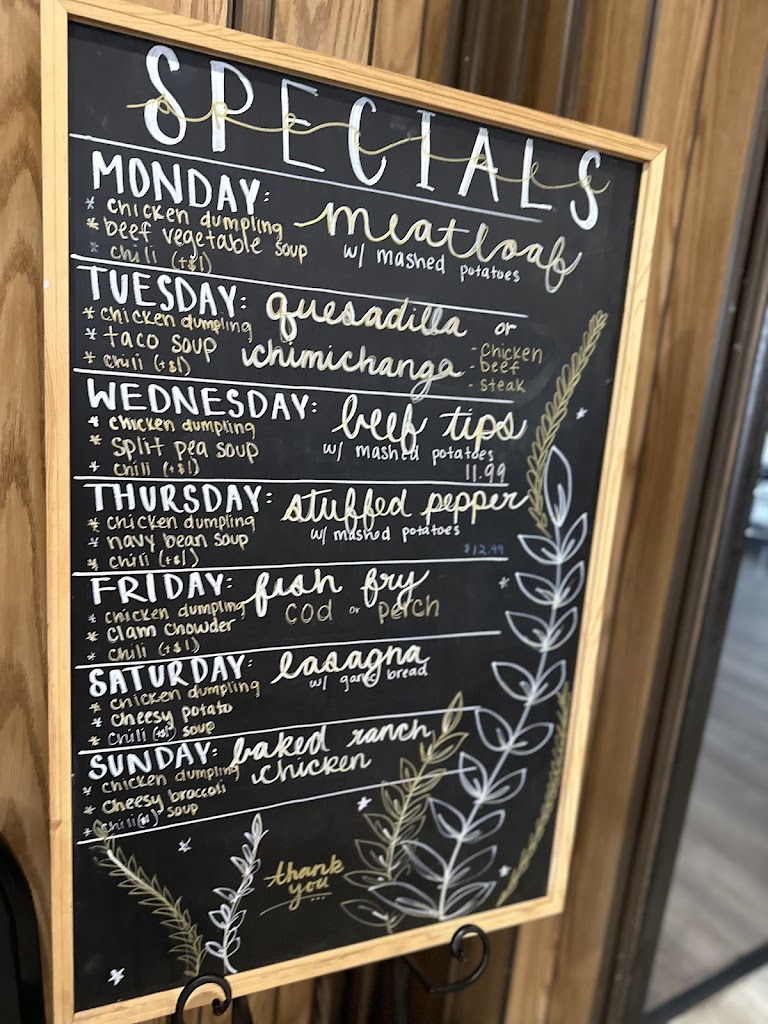 SPECIALS
MONDAY: meatloaf
* chicken dumpling
* beef vegetable soup w/ mashed potatoes
* chili (+$1)
TUESDAY: quesadilla or
* chicken dumpling
* taco soup chimichanga - chicken
- beef
* chili (+$1)
- steak
WEDNESDAY: beef tips
* chicken dumpling
* split pea soup w/ mashed potatoes
* chili (+$1) 11.99
THURSDAY: stuffed pepper
* chicken dumpling w/ mashed potatoes
* navy bean soup
* chili (+$1) $12.99
FRIDAY: fish fry
* chicken dumpling cod or perch
* clam chowder
* chili (+$1)
SATURDAY: lasagna
* chicken dumpling w/ garlic bread
* cheesy potato
* chili (+$1) soup
SUNDAY: baked ranch
* chicken dumpling chicken
* cheesy broccoli
* chili (+$1) soup
thank
you
...